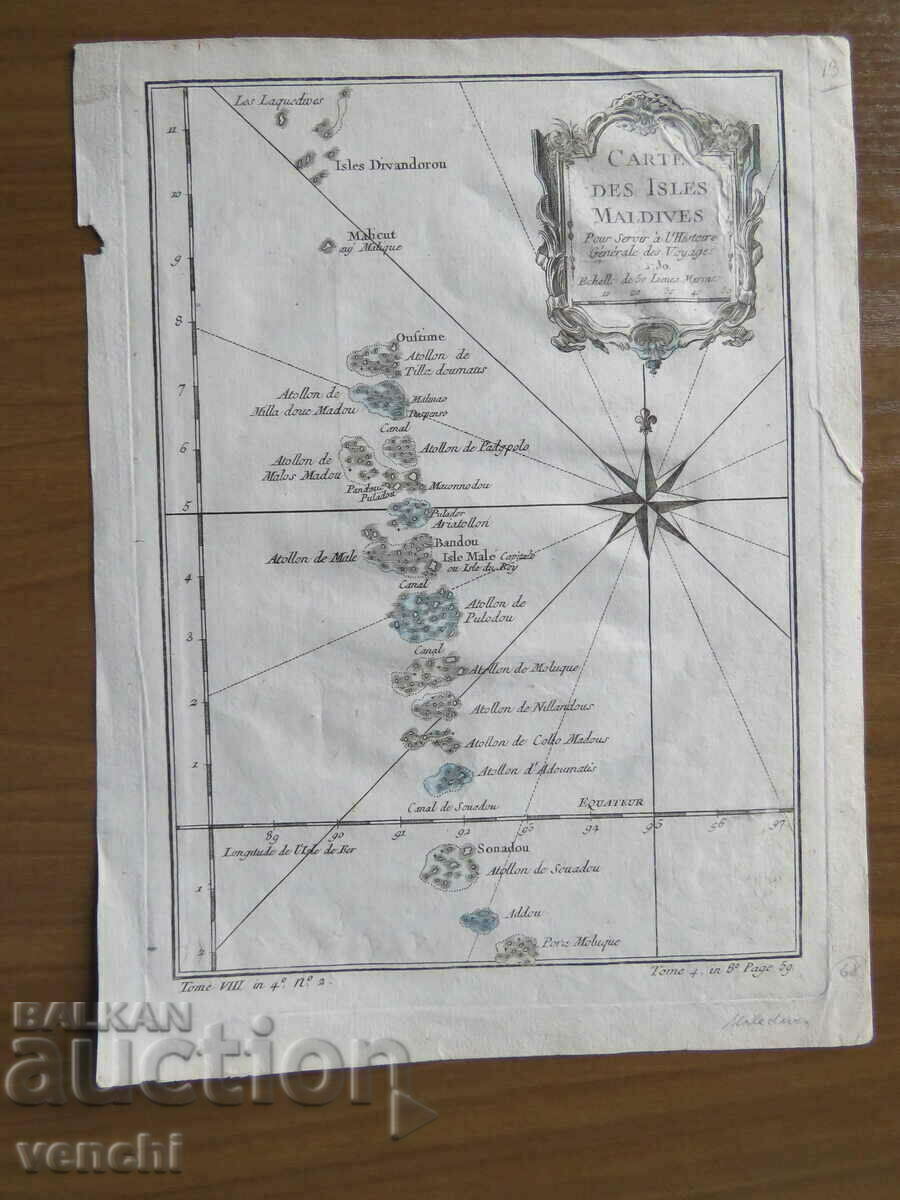 19
Les Laquedives
Isles Divandorou
Malicut
ou Malique
CARTE
DES ISLES
MALDIVES
Pour Servir à l'Histoire
Générale des Voyages
Echelle de 50 Lieues Marines
10 20 30 4
11
10
9
8
7
6
5
4
3
2
1
1
2
Oustime
Atollon de
Tilla doumatis
Atollon de
Milla doue Madou
Malmao
Canal
Atollon de Padypolo
Atollon de
Malos Madou
Pandoue
Puladou
Maconnodou
Pulador
Ariatollon
Bandou
Atollon de Male
Isle Malé Capitale
ou Isle du Roy
Canal
Atollon de
Pulodou
Canal
Atollon de Moluque
Atollon de Nillandous
Atollon de Collo Madous
Atollon d'Adoumatis
Canal de Souadou
EQUATEUR
89 90 91 92 93 94 95 96 97
Longitude de l'Isle de Fer
Sonadou
Atollon de Souadou
Addou
Pora Moluque
Tome VIII in 4º. nº. 2.
Tome 4. in 8º Page 59
68
Malediven
BALKAN
auction
venchi